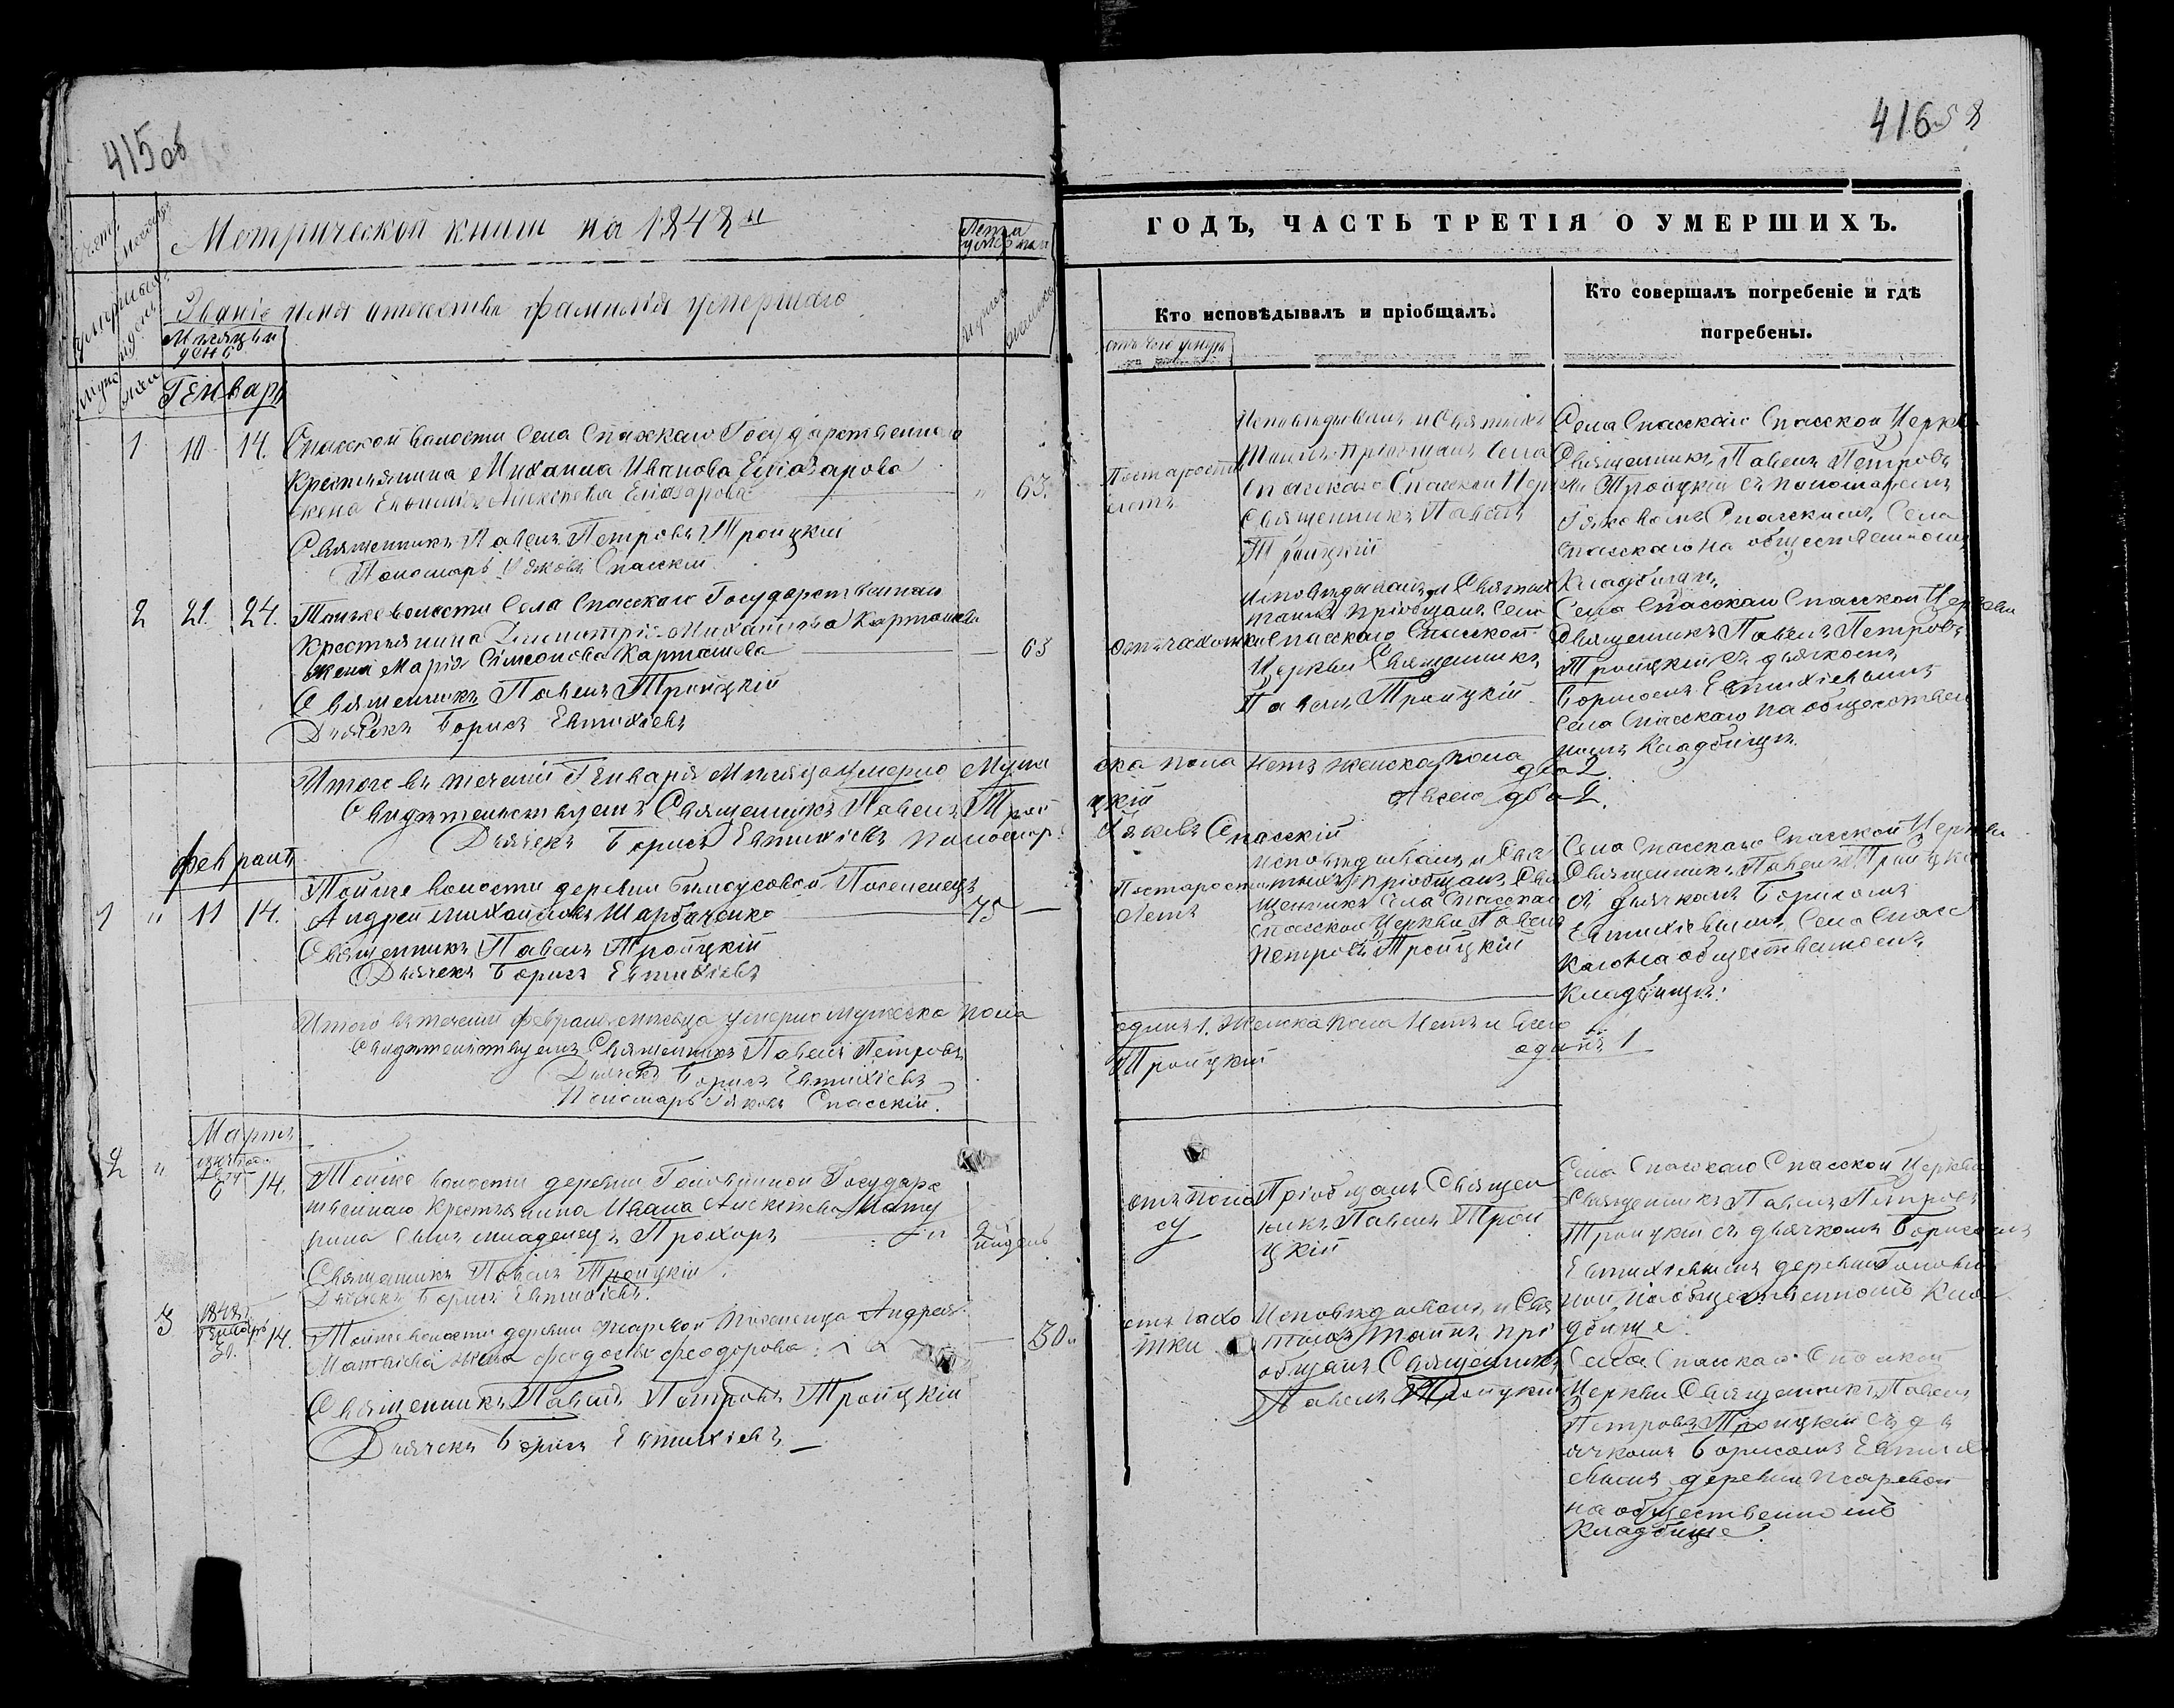 415 об
416
Метрической книги на 1848й
ГОДЪ, ЧАСТЬ ТРЕТІЯ О УМЕРШИХЪ.
Званіе имя отечество фамилія умершаго
Лета
Кто исповѣдывалъ и пріобщалъ.
Кто совершалъ погребеніе и гдѣ
погребены.
Генварь
1 10 14. Спасской волости Села Спасскаго Государственнаго
крестьянина Михаила Иванова Елиазарова
жена Алексѣева Елиазарова 63.
Священникъ Павелъ Петровъ Троицкій
Пономарь Іяковъ Спасскій
Постарости
летъ
Исповѣдывалъ и Святыхъ
Таинъ Пріобщалъ Села
Спасскаго Спасской Цер
Священникъ Павелъ
Троицкій
Села Спасскаго Спасской Церкви
Священникъ Павелъ Петровъ
Троицкій съ пономаремъ
Іяковомъ Спасскимъ, Села
Спасскаго на общественномъ
Кладбищѣ.
2 21. 24. Тойже волости Села Спасскаго Государственнаго
Крестьянина Димитрія Михайлова Карташева
жена Марія Симеонова Карташева 63
Священникъ Павелъ Троицкій
Дьячекъ Борисъ Евтихіевъ
отъ чахотки
Исповѣдывалъ и Святыхъ
таинъ пріобщалъ Села
Спасскаго Спасской
Церкви Священникъ
Павелъ Троицкій
Села Спасскаго Спасской Церкви
Священникъ Павелъ Петровъ
Троицкій съ дьячкомъ
Борисомъ Евтихіевымъ
Села Спасскаго на обществен
номъ Кладбищѣ.
Итого въ теченіи Генваря Месяца умерло Муже ска пола Нетъ женска пола два 2.
Свидѣтельствуемъ Священникъ Павелъ Трои цкій Авсего два 2.
Дьячекъ Борисъ Евтихіевъ пономарь Іяковъ Спасскій
февраль
1 " 11 14. Тойже волости деревни Билоусовой Поселенецъ
Андрей Михайловъ Шарбаченко 75 —
Священникъ Павелъ Троицкій
Дьячекъ Борисъ Евтихіевъ
Постарости
Летъ
Исповѣдывалъ и Свя
тыхъ пріобщалъ Свя
щенникъ Села Спасскаго
Спасской Церкви Павелъ
Петровъ Троицкій
Села Спасскаго Спасской Церкви
Священникъ Павелъ Троицкій
съ дьячкомъ Борисомъ
Евтихіевымъ, Села Спасс
каго на общественномъ
Кладбищѣ.
Итого въ теченіи февраля месяца умерло мужеска пола одинъ 1. Женска пола Нетъ и всего
одинъ 1
Свидѣтельствуемъ Священникъ Павелъ Петровъ Троицкій
Дьячекъ Борисъ Евтихіевъ
Пономарь Іяковъ Спасскій.
Мартъ
2 " 6 14. Тойже волости деревни Головиной Государс
твеннаго Крестьянина Ивана
сынъ младенецъ Прохоръ
Священникъ Павелъ Троицкій.
Дьячекъ Борисъ Евтихіевъ.
отъ поно
су
Пріобщалъ Священ
никъ Павелъ Трои
цкій
Села Спасскаго Спасской Церкви
Священникъ Павелъ Петровъ
Троицкій съ дьячкомъ Борисомъ
Евтихіевымъ деревни Головин
ной на общественномъ Кла
дбище.
3 1848 Генварь 30. 14. Тойже волости деревни Псаревой Поселенца Андрея
Матвіева жена Феодосья Феодорова 30
Священникъ Павелъ Петровъ Троицкій
Дьячекъ Борисъ Евтихіевъ
отъ чахо
тки
Исповѣдывалъ и Свя
тыхъ таинъ прі
общалъ Священникъ
Павелъ Троицкій
Села Спасскаго Спасской
Церкви Священникъ Павелъ
Петровъ Троицкій съ дь
ячкомъ Борисомъ Евтихі
евымъ деревни Псаревой
на общественномъ
Кладбище.